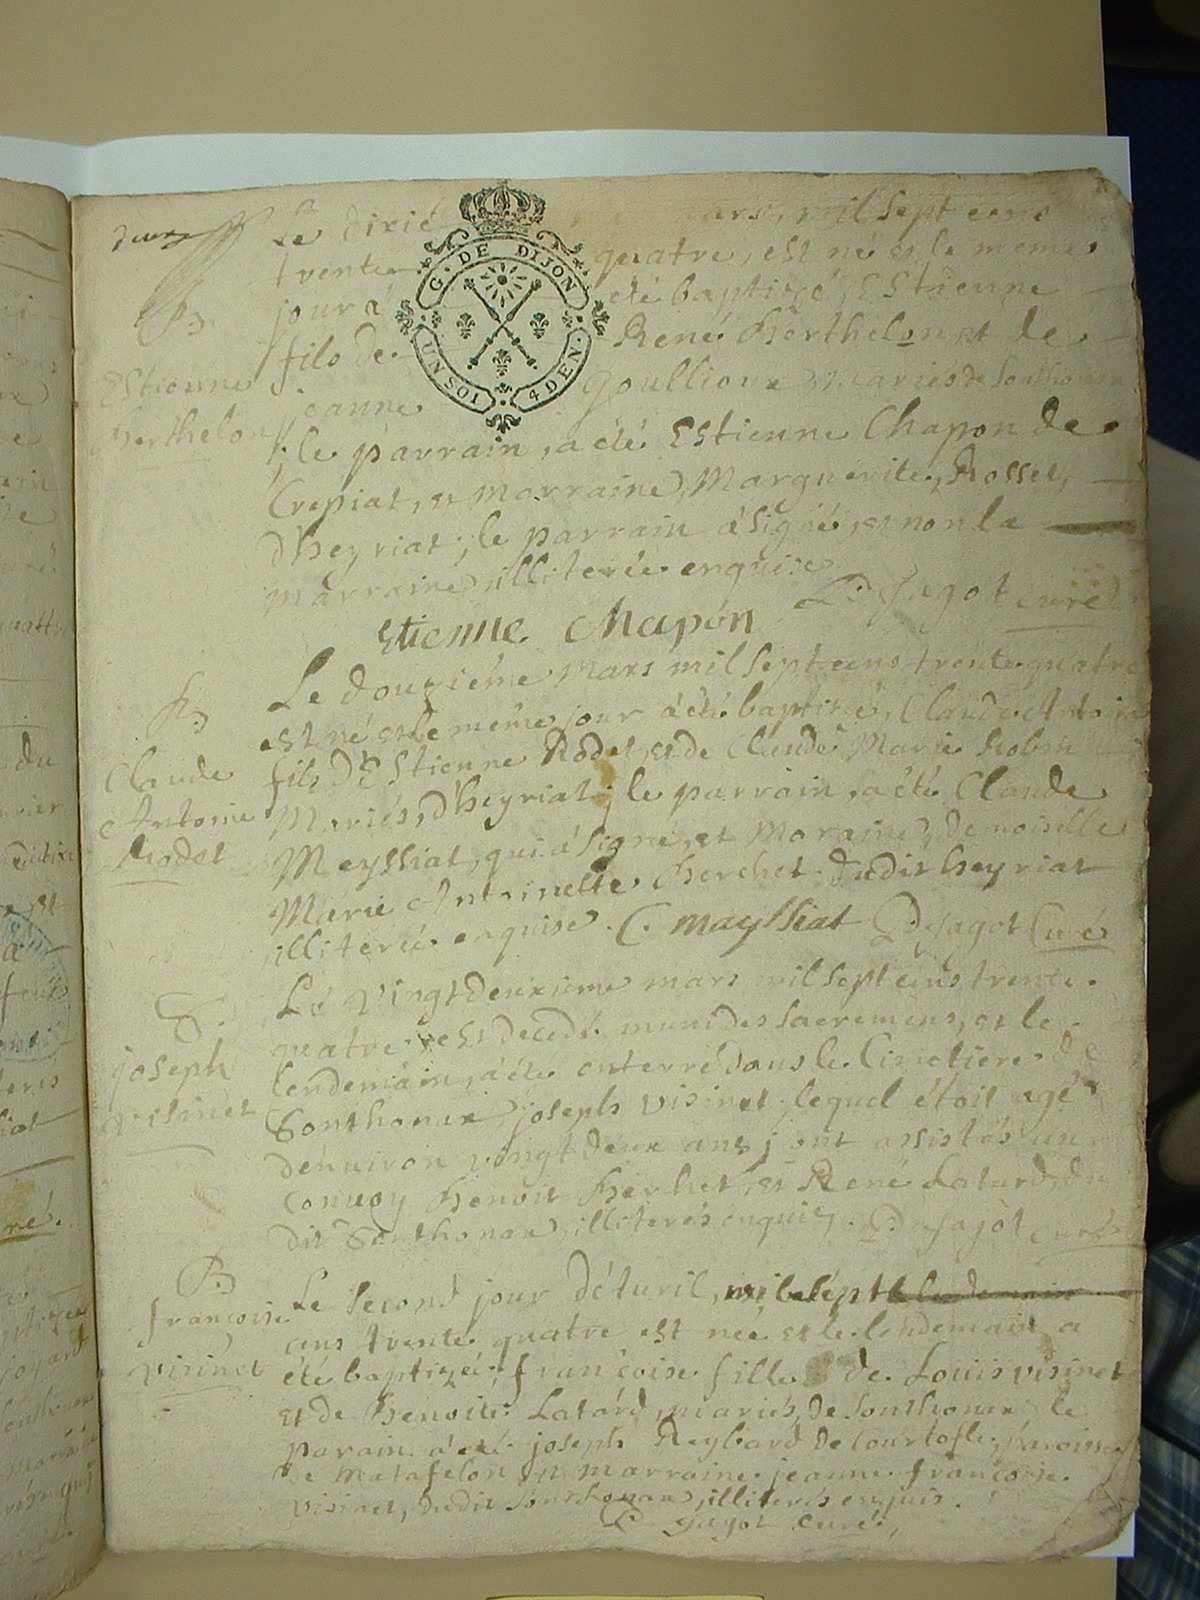 deux
Le dixié mars, mil sept cens
trente quatre, est né et le meme
jour a été baptizé, Estienne
B
Estienne
Berthelon
fils de René Berthelon et de
jeanne Goullioux mariés de Sonthonnax
; le parrain, a été Estienne Chapon de
Crepiat, et marraine, Marguerite, Rosset,
d'heyriat, ; le parrain à signé, et non la
marraine, illiterée enquise
D. Jagot curé
Etienne Chapon
Le douzième mars mil sept cens trente quatre
B
Claude
Antoine
Rodet
est né et le même jour à été baptisé, Claude Antoine
fils D'Estienne Rodet, et de Claude Marie Robin
Mariés, d'heyriat, ; le parrain, a été Claude
Meyssiat, qui à signé, et Maraine, Demoiselle
Marie Antoinette Berchet dudit heyriat
illiterée enquise. C. mayssiat D. Jagot Curé
S.
joseph
visinet
Le Vingt deuxieme mars mil sept cens trente
quatre est decedé muni des sacremens, et le
lendemain, à été enterré dans le Cimetiere de
Sonthonax, joseph visinet, lequel étoit agé
d'environ vingt deux ans, ont assistés au
convoy Benoit Berchet, et René Latard, du
dit Sonthonax, illiterés enquis. D. Jagot curé
B
françoise
visinet
Le second jour d'avril, mil sept le lendemain
cens trente quatre est née et le lendemain a
été baptizée, françoise fille de Louis visinet
et de Benoite Latard, mariés, de Sonthonax le
parain à été joseph Reybard de Courtofle, paroisse
de Matafelon et marraine jeanne françoise
visinet, dudit Sonthonax, illiterés enquis.
D. Jagot curé,
G. DE DIJON
UN SOL 4 DEN.